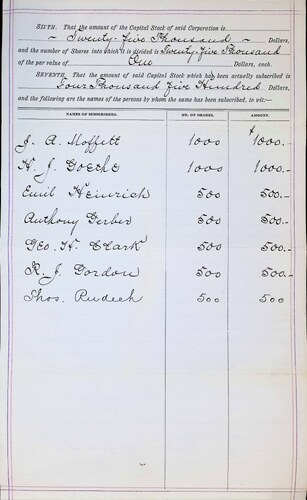 SIXTH. That the amount of the Capital Stock of said Corporation is
- Twenty-Five Thousand - Dollars,
and the number of Shares into which it is divided is Twenty-Five Thousand
of the par value of One Dollars, each.
SEVENTH. That the amount of said Capital Stock which has been actually subscribed is
Four Thousand Five Hundred Dollars,
and the following are the names of the persons by whom the same has been subscribed, to wit:—
NAMES OF SUBSCRIBERS. NO. OF SHARES. AMOUNT.
J. A. Moffett 1000 $1000.-
H. J. Goethe 1000 1000.-
Emil Heinrich 500 500.-
Anthony Gerber 500 500.-
Geo. H. Clark 500 500.-
R. J. Gordon 500 500.-
Thos. Rudech 500 500